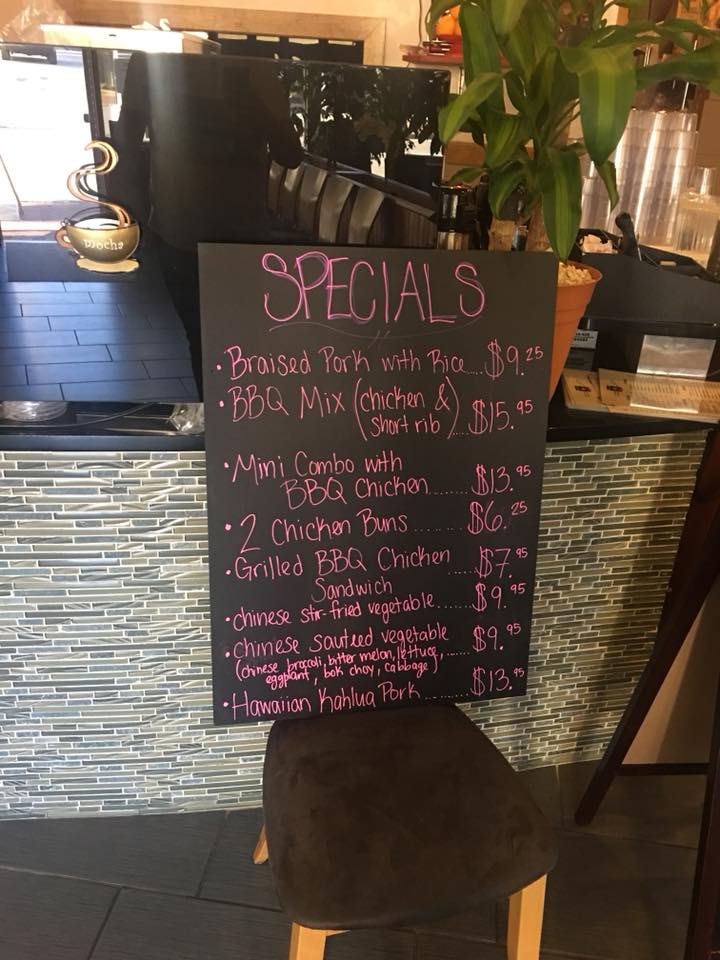 mocha
SPECIALS
• Braised Pork with Rice....$9.25
• BBQ Mix (chicken &
short rib)....$15.95
• Mini Combo with
BBQ Chicken........$13.95
• 2 Chicken Buns ...... $6.25
• Grilled BBQ Chicken .....$7.95
Sandwich
• chinese stir-fried vegetable.......$9.95
• chinese sauteed vegetable ......$9.95
(chinese brocoli, bitter melon, lettuce,
eggplant, bok choy, cabbage)
• Hawaiian Kahlua Pork........$13.95